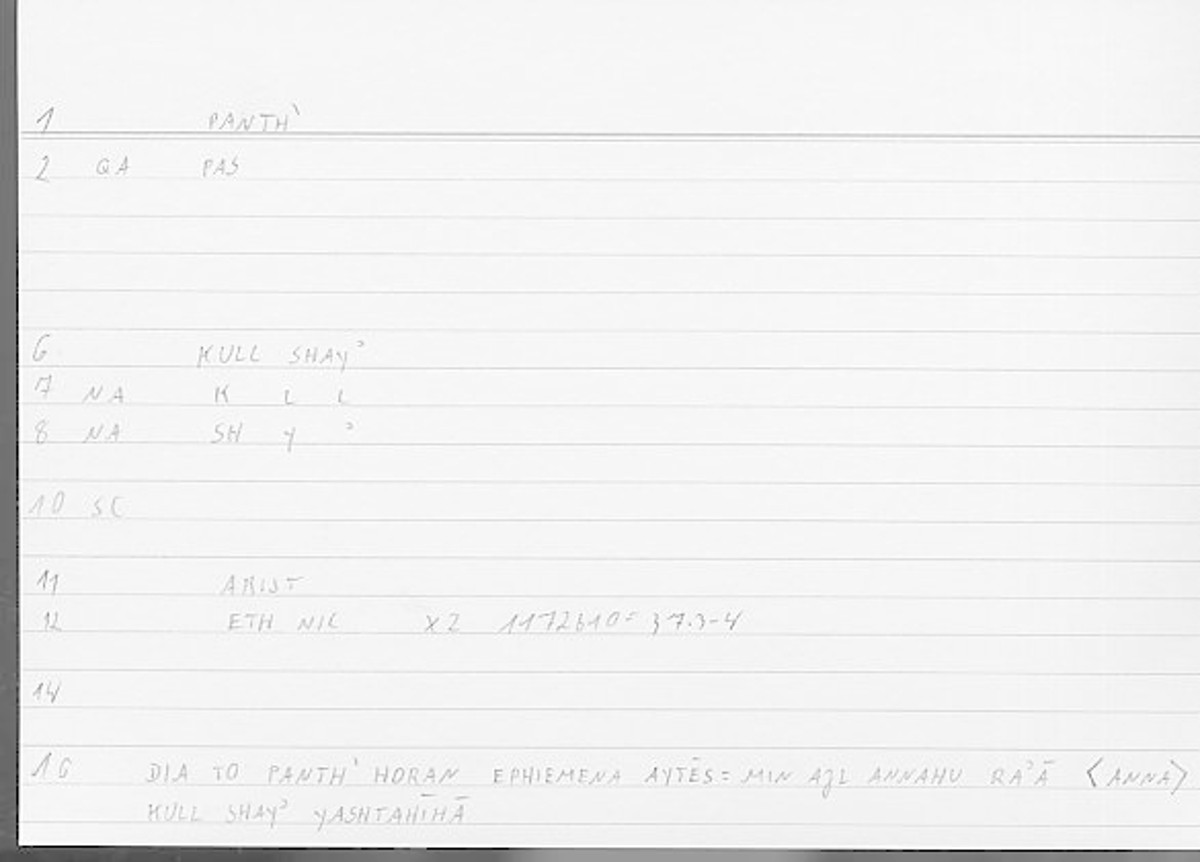 1 PANTH`
2 QA PAS
6 KULL SHAYʾ
7 NA K L L
8 NA SH Y ʾ
10 SC
11 ARIST
12 ETH NIC X2 1172b10= 37.3-4
14
16 DIA TO PANTH` HORAN EPHIEMENA AYTĒS= MIN AJL ANNAHU RAʾĀ <ANNA>
KULL SHAYʾ YASHTAHĪHĀ